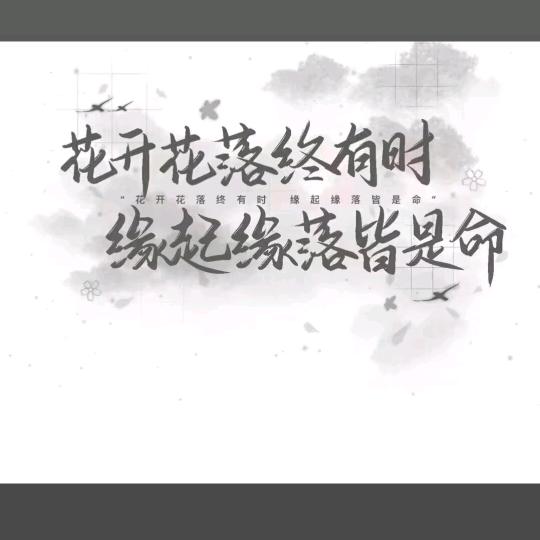 花开花落终有时
“花开花落终有时 缘起缘落皆是命”
缘起缘落皆是命